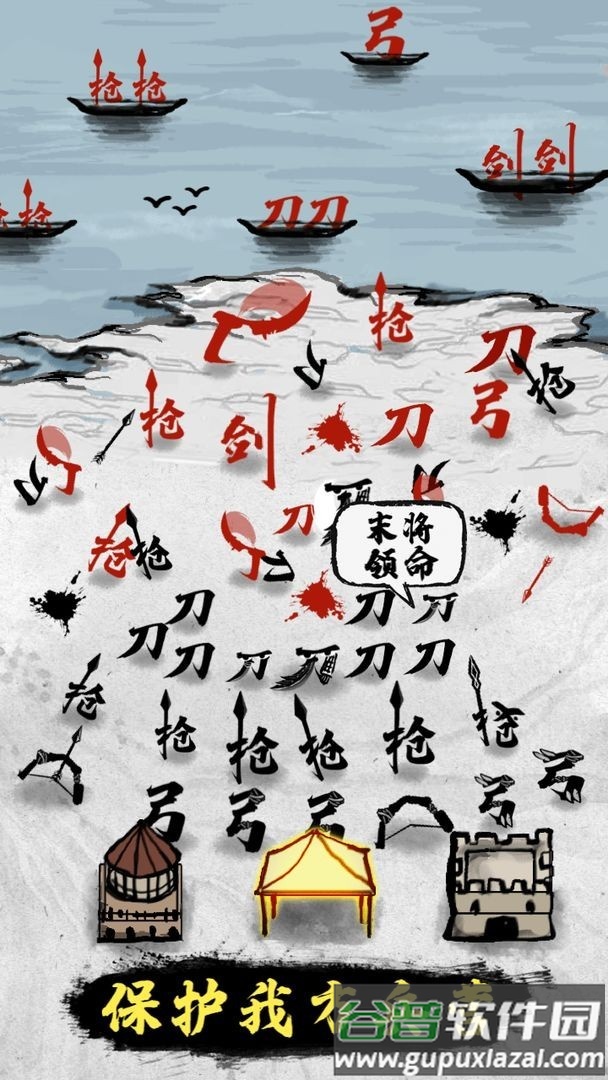 弓
枪枪
剑剑
枪枪
刀刀
枪
刀
枪
弓
枪
剑
刀
刀
枪
枪
末将
领命
刀
刀
刀
刀
刀
刀
刀
刀
枪
枪
枪
枪
枪
枪
弓
弓
弓
弓
弓
保护我方
谷普软件园
www.gupuxlazal.com